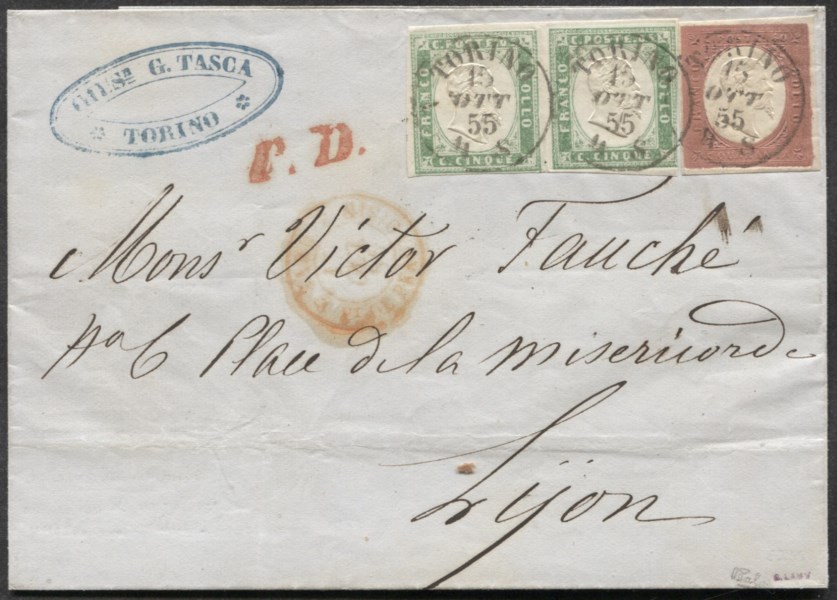 GIUSᴬ G. TASCA
TORINO
P. D.
C. POSTE
FRANCO
C. CINQUE
C. POSTE
FRANCO
C. CINQUE
TORINO
15
OTT
55
TORINO
15
OTT
55
TORINO
15
OTT
55
Monsʳ Victor Fauché
Place de la misericorde
Lijon